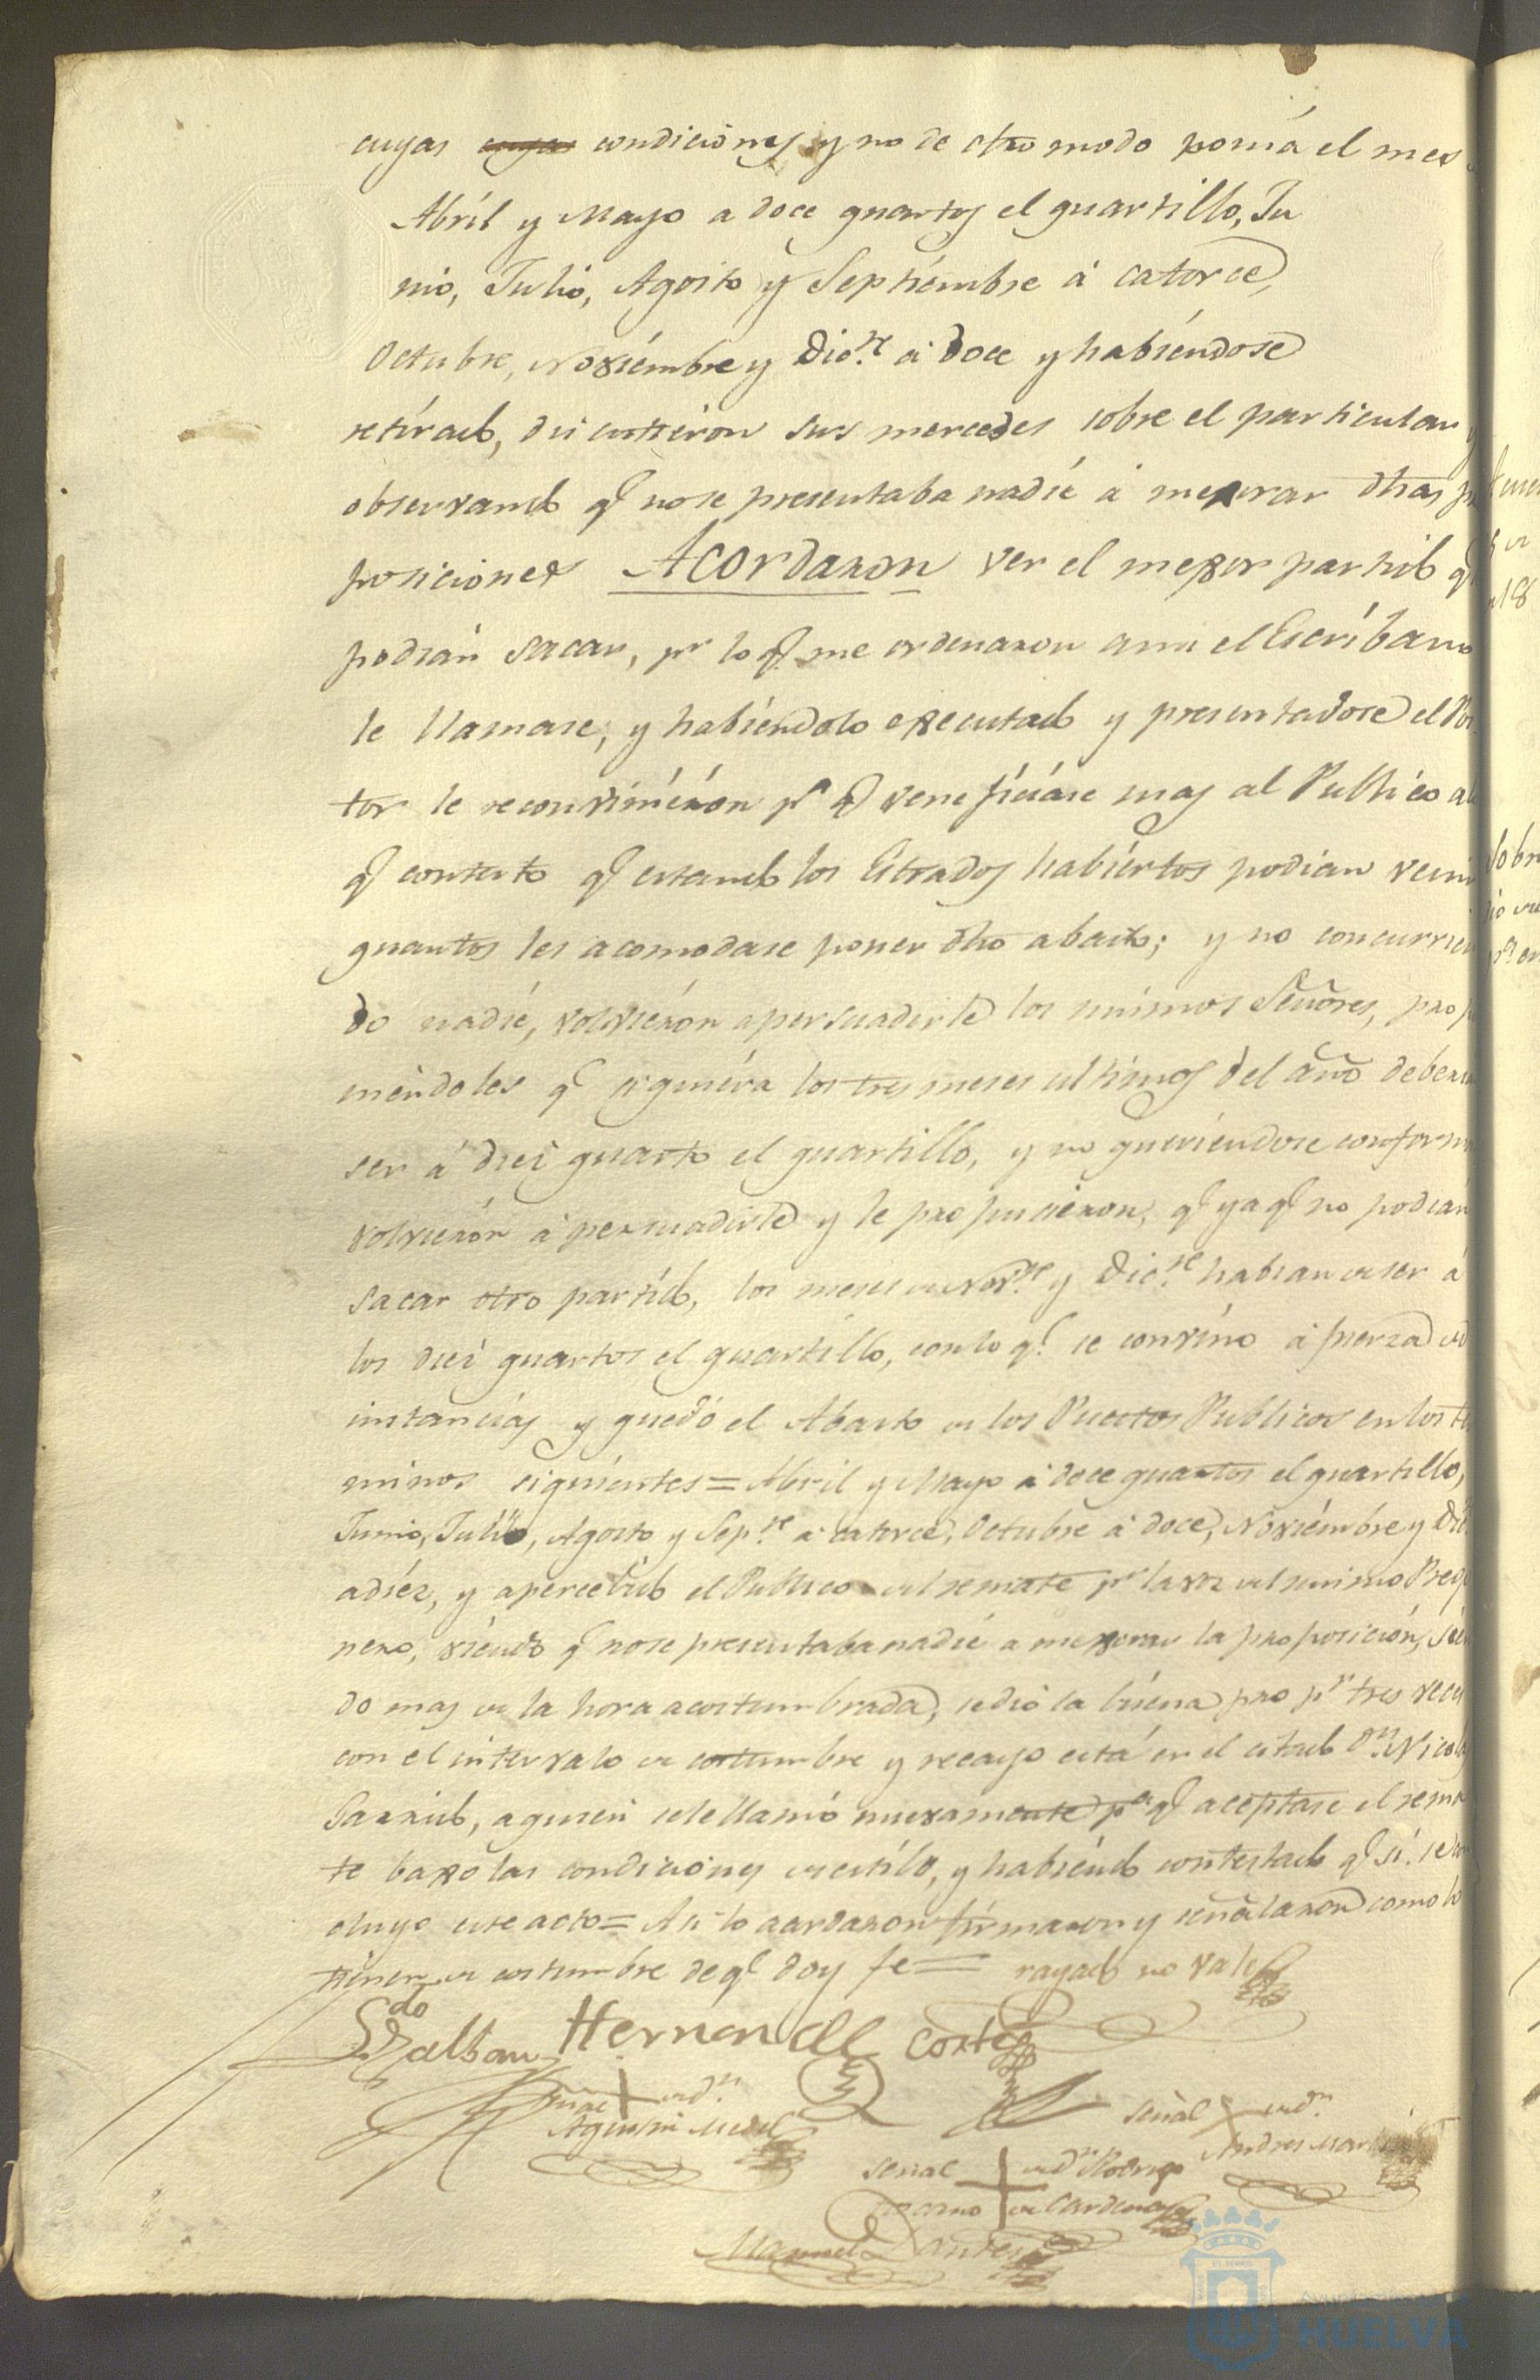 cuyas cuyas condiciones y no de otro modo ponia el mes
Abril y Mayo a doce quartos el quartillo, Ju
nio, Julio, Agosto y Septiembre á catorce,
Octubre, Noviembre y Dic.re á doce y habiendose
retirado, discutieron sus mercedes sobre el particular y
observando q.e no se presentaba nadie á mejorar dhas
posiciones Acordaron ver el mejor partido q.e
podian sacar, p.r lo q.e me ordenaron a mi el Escribano
le llamase, y habiendolo executado y presentadose el Pos
tor le reconvinieron p.a q.e veneficiase mas al Publico a lo
q.e contesto q.e estando los Estrados habiertos podian venir
quantos les acomodase poner dho abasto; y no concurrien
do nadie, volvieron a persuadirle los mismos Señores, prop
niendoles q.e siquiera los tres meses ultimos del año deberian
ser á diez quarto el quartillo, y no queriendose conformar
volvieron á persuadirle y le propusieron, q.e ya q.e no podian
sacar otro partido, los meses de Nov.re y Dic.re habian de ser á
los diez quartos el quartillo, con lo q.e se convino á fuerza de
instancias y quedó el Abasto de los Puestos Publicos en los te
minos siguientes = Abril y Mayo á doce quartos el quartillo,
Junio, Julio, Agosto y Sep.re á catorce, Octubre á doce, Noviembre y Dic.
a diez, y apercebido el Publico del remate p.r la voz del mismo Prego
nero, viendo q.e no se presentaba nadie a mejorar la proposicion, sien
do mas de la hora acostumbrada, se dió la buena pro p.r tres veces
con el intervalo de costumbre y recayo está en el citado D.n Nicolas
Garrido, a quien se le llamó nuevamente p.a q.e aceptase el rema
te baxo las condiciones de estilo, y habiendo contestado q.e si, se con
cluyo este acto = Asi lo acordaron firmaron y señalaron como lo
tienen de costumbre de q.e doy fe = rayado no vale
Ldo Galban Hernandez Cortes
Señal de D.n
Agustin Medel
Señal de D.n
Andres Mar
Señal de D.n Rodrigo
de Cardenas
Manuel
Ayuntamiento de
HUELVA